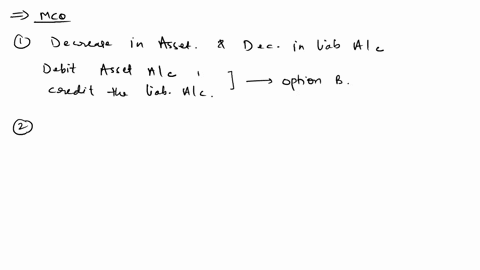 ⇒ MCQ
① Decrease in Asset. & Dec. in liab A/c
Debit Asset A/c ,
credit the liab. A/c. ] → option B.
②